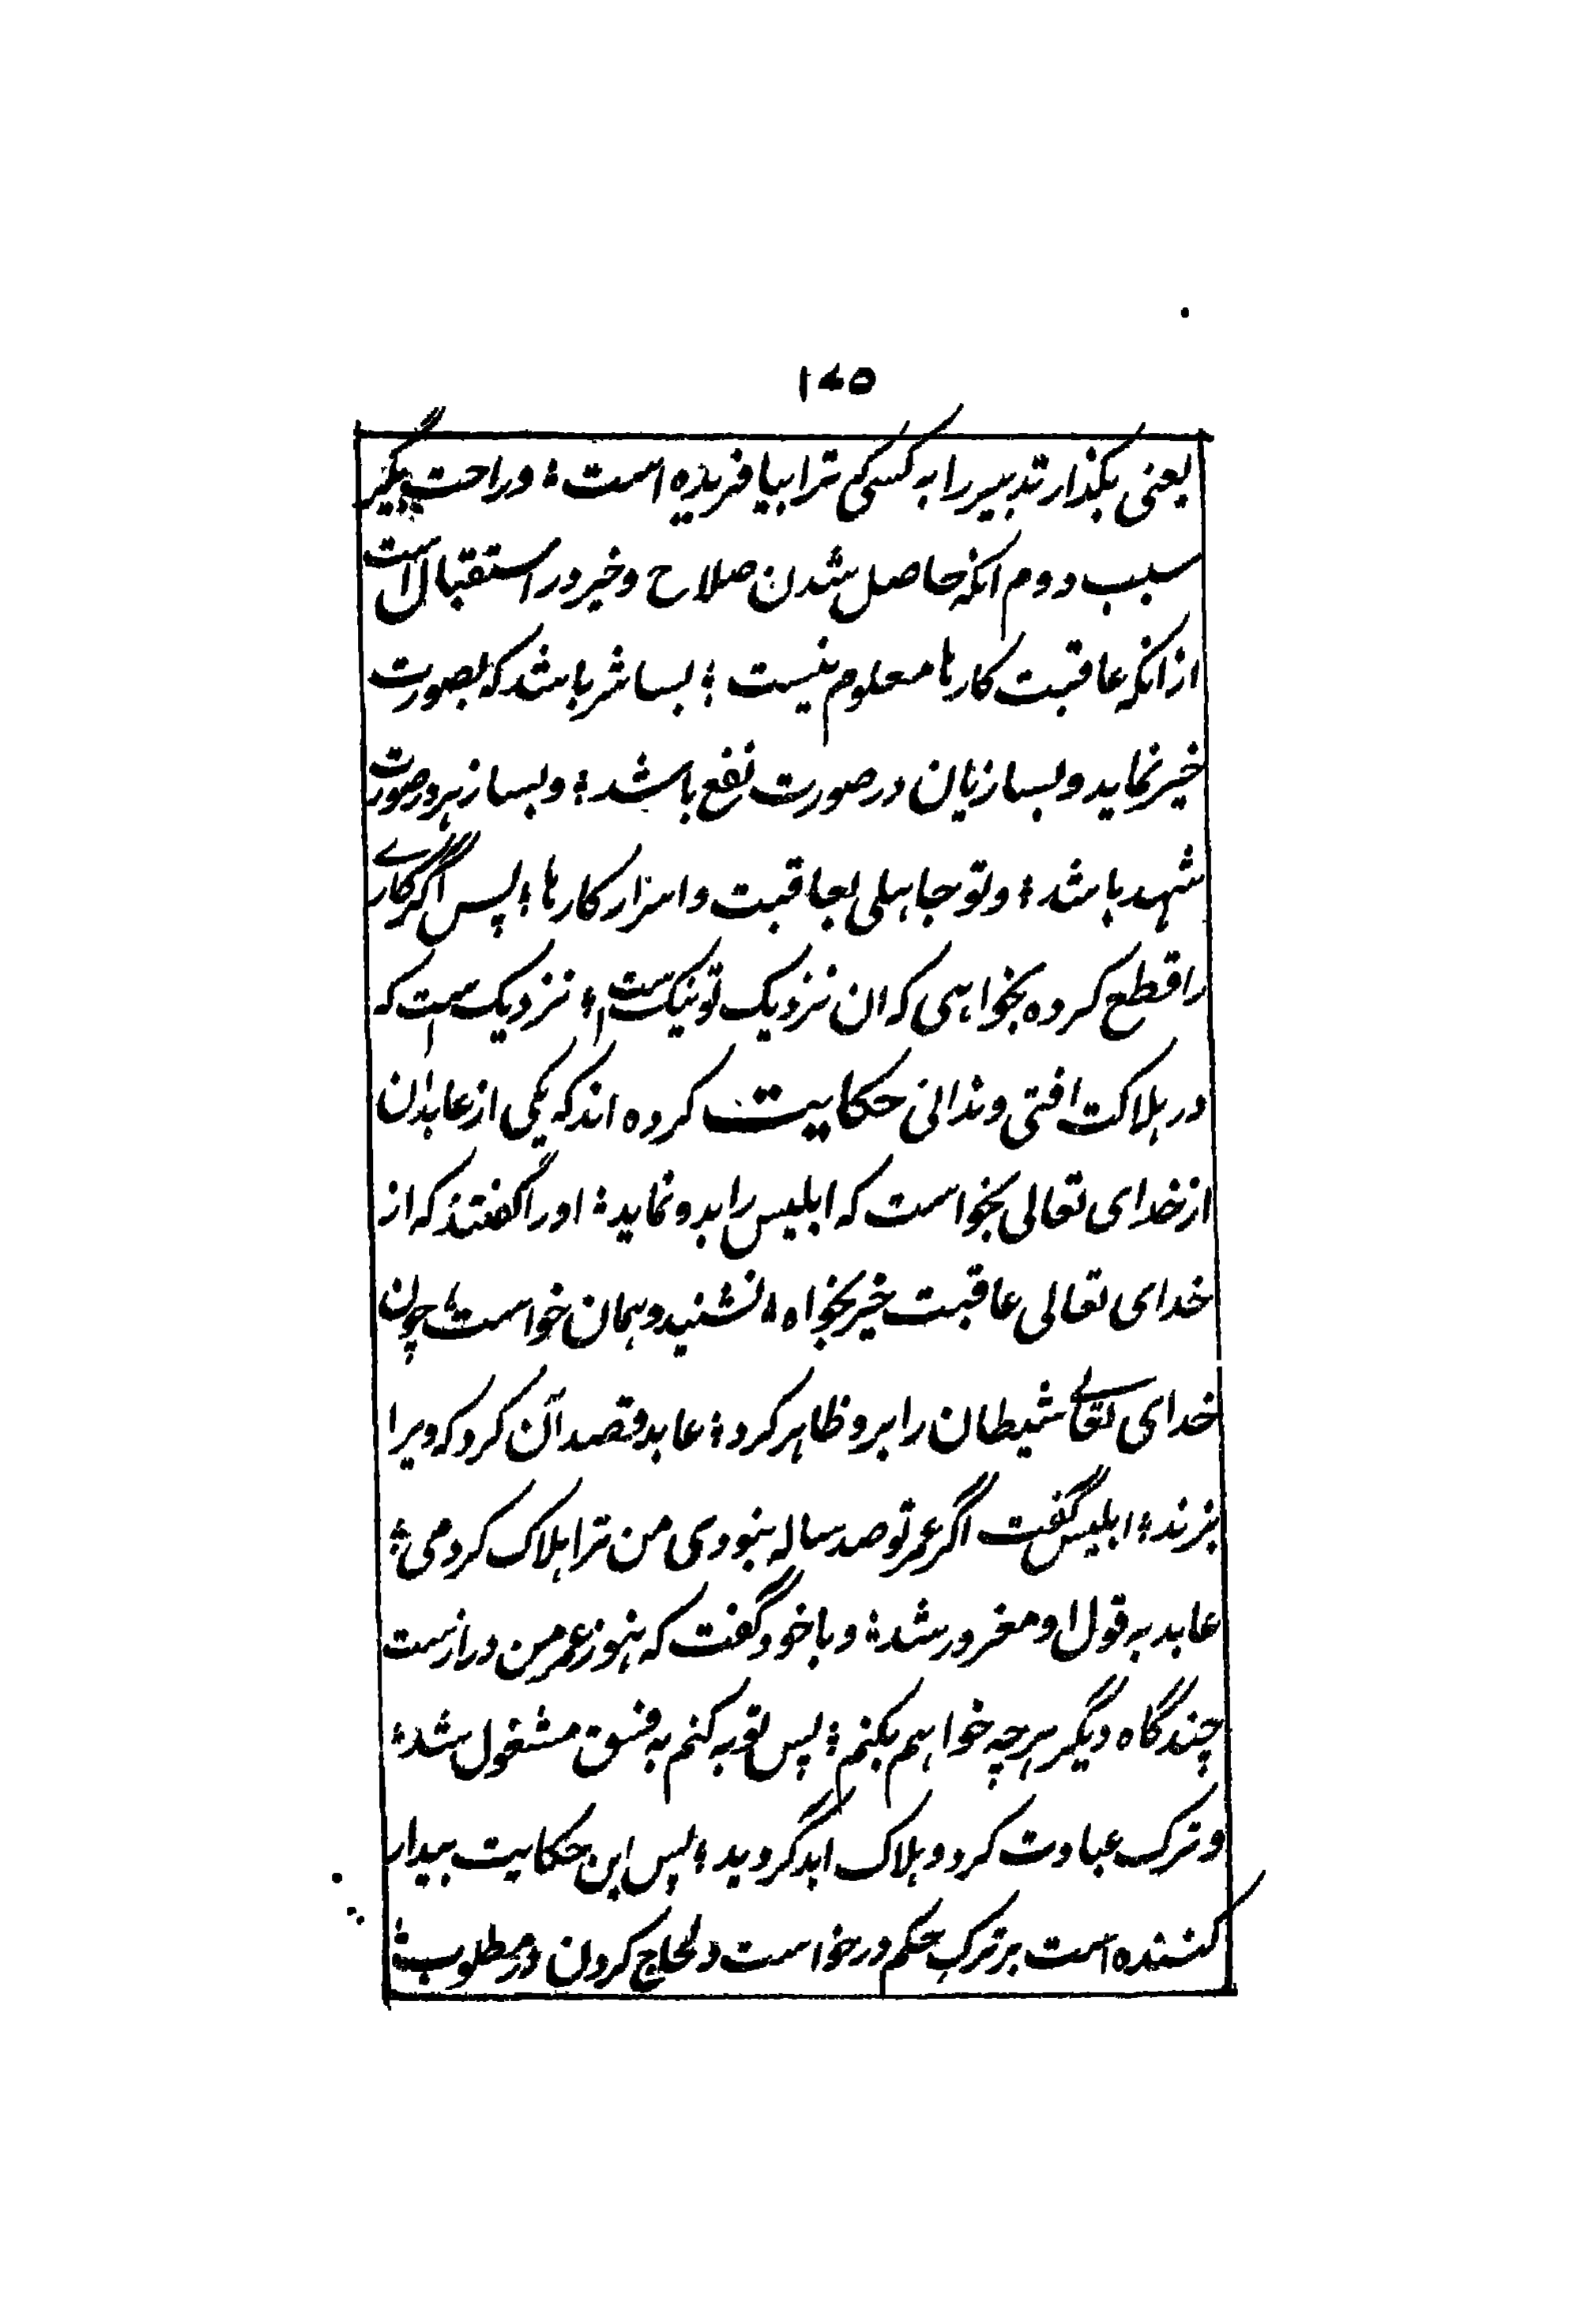 ۱۴۵
یعنی بگذار تدبیر را به کسی که ترا بیافریده است؛ و راحت بگیر
سبب دوم انکه حاصل شدن صلاح و خیر در استقبال است
از انکه عاقبت کارها معلوم نیست؛ بسا شر باشد که بصورت
خیر نماید و بسا زیان در صورت نفع باشد؛ و بسا زهر در صورت
شهد باشد؛ و تو جاهلی بعاقبت و اسرار کارها؛ پس اگر کارے
را قطع کرده بخواهی که ان نزدیک تو نیک ست؛ نزدیک ست که
در هلاکت افتی و ندانی حکایت کرده اند که یکی از عابدان
از خدای تعالی بخواست که ابلیس را بدو نماید؛ او را گفتند که از
خدای تعالی عاقبت خیر بخواه؛ نشنید و همان خواست؛ چون
خدای تعالے شیطان را برو ظاهر کرد؛ عابد قصد آن کرد که ویرا
بزند؛ ابلیس گفت اگر عمر تو صد ساله نبودی من ترا هلاک کردمی؛
عابد به قول او مغرور شد؛ و با خود گفت که هنوز عمر من درازست
چند گاه دیگر هرچه خواهم بکنم؛ پس توبه کنم به فسق مشغول شد؛
و ترک عبادت کرد و هلاک ابد گردید؛ پس این حکایت بیدار
کننده است بر ترک حکم درخواست و لحاج کردن در مطلوب؛